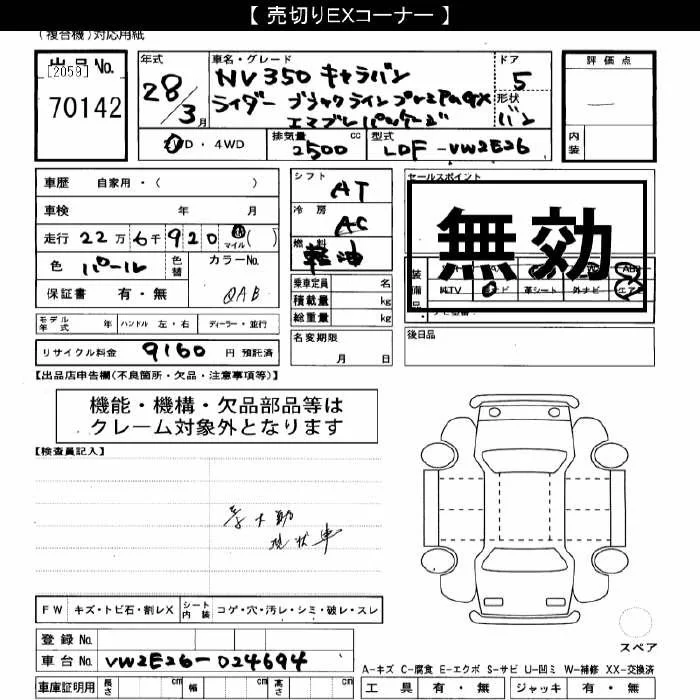 【 売切りEXコーナー 】
(複合機)対応用紙
出品No. [2059]
70142
年式 28/3月
車名・グレード
NV350 キャラバン
ライダー ブラックラインプレミアムGX
エマブレパッケージ
ドア 5
形状 バン
評価点
内装
2WD・4WD
排気量 2500 cc
型式 LDF-VW2E26
車歴 自家用・( )
車検 年 月
走行 22万6千920 マイル( )
色 パール 色替 カラーNo. QAB
保証書 有・無
モデル年式 年 ハンドル 左・右 ディーラー・並行
リサイクル料金 9160 円 預託済
シフト AT
冷房 AC
燃料 軽油
乗車定員 名
積載量 kg
総重量 kg
名変期限
月 日
セールスポイント
無効
純TV 革シート 外ナビ エアB
後日品
【出品店申告欄(不良箇所・欠品・注意事項等)】
機能・機構・欠品部品等は
クレーム対象外となります
【検査員記入】
不動
現状車
FW キズ・トビ石・割レX シート内装 コゲ・穴・汚レ・シミ・破レ・スレ
登録No.
車台No. VW2E26-024694
車庫証明用 長さ cm 幅 cm 高さ cm
スペア
A-キズ C-腐食 E-エクボ S-サビ U-凹ミ W-補修 XX-交換済
工具 有・無 ジャッキ 有・無